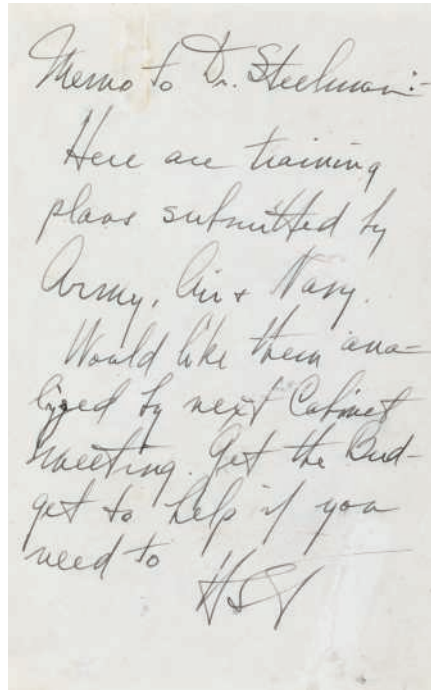 Memo to Dr. Steelman:-
Here are training
plans submitted by
Army, Air + Navy.
Would like them ana-
lyzed by next Cabinet
meeting. Get the Bud-
get to help if you
need to
HST